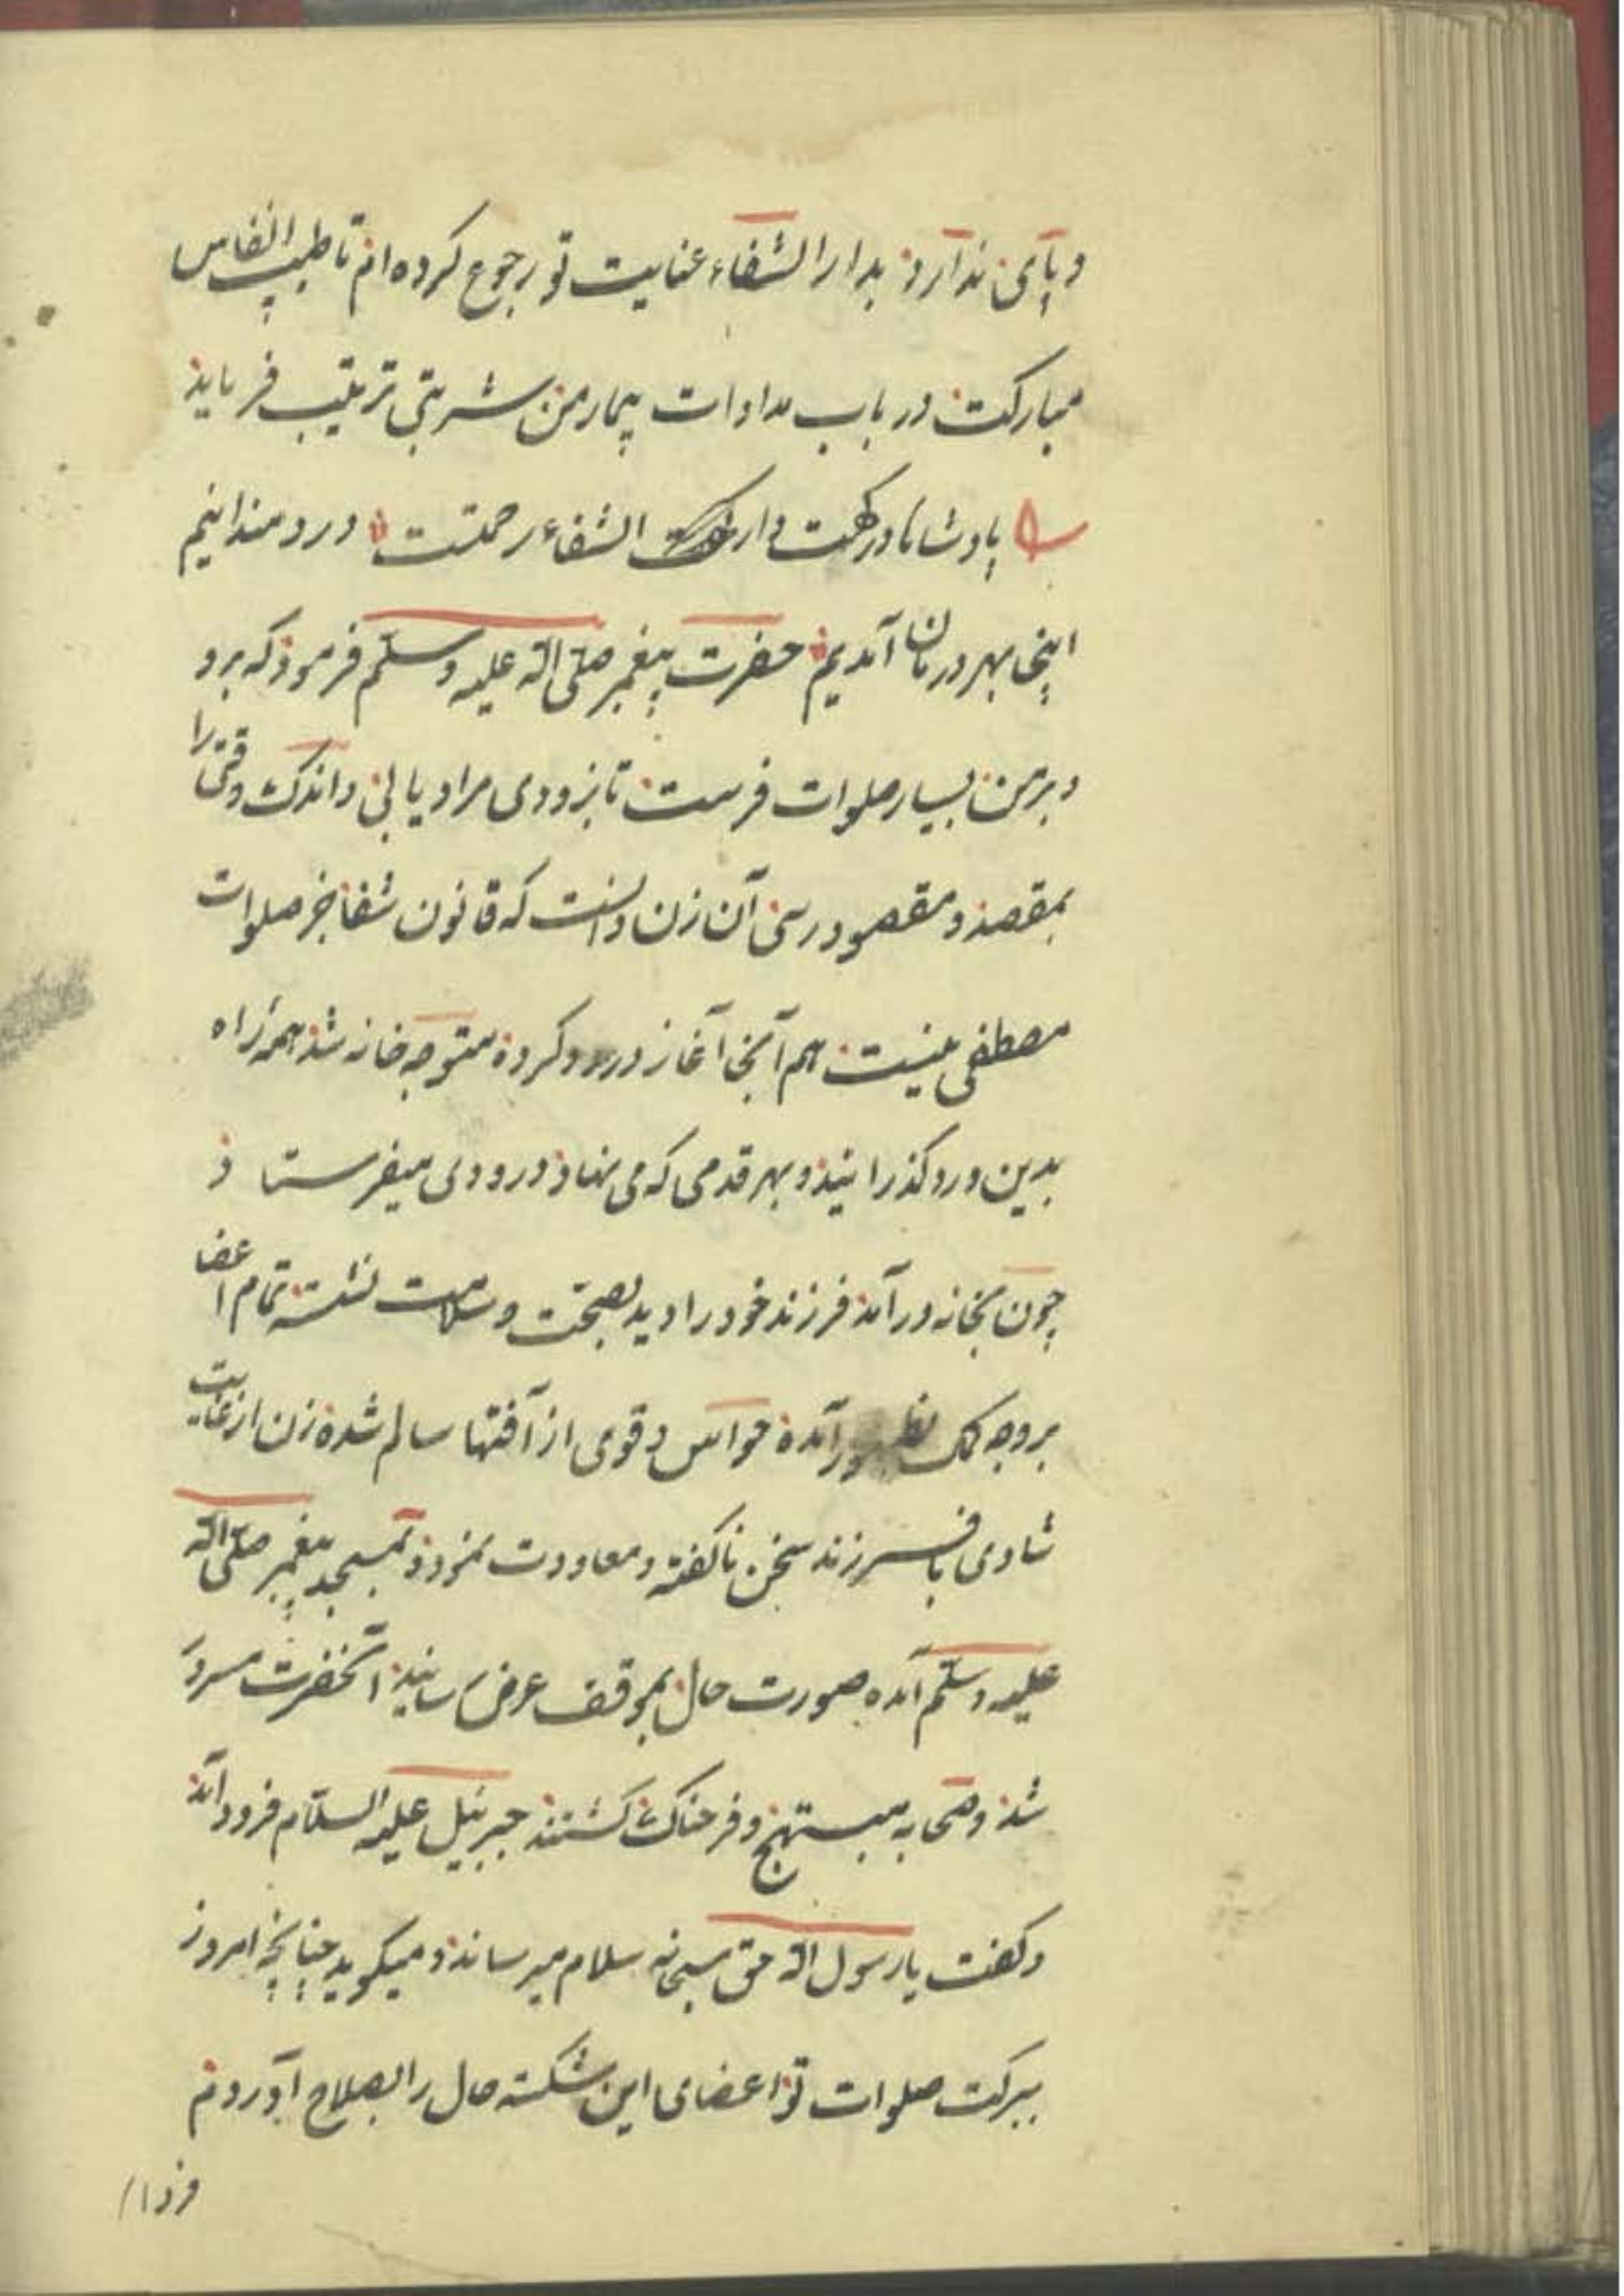 و پای ندارد بدار الشفاء عنایت تو رجوع کرده ام تا طبیب انفاس
مبارکت در باب مداوات بیمار من شربتی ترتیب فرماید
پادشاها درکهت دار الشفاء رحمتست دردمندانیم
اینجا بهر درمان آمدیم حضرت پیغمبر صلی الله علیه وسلم فرموذ که برو
و بر من بسیار صلوات فرست تا بزودی مراد یابی و اندک وقتی را
بمقصد و مقصود رسی آن زن دانست که قانون شفا جز صلوات
مصطفی نیست هم آنجا آغاز درود کرده متوجه خانه شد همه راه
بدین ورد کذرانید و بهر قدمی که می نهاذ درودی میفرستاذ
چون بخانه درآمد فرزند خود را دید بصحت و سلامت نشسته تمام اعضا
بر وجه بظهور آمده حواس و قوی از آفتها سالم شده زن از غایت
شادی با فرزند سخن ناکفته و معاودت نموذ و بمسجد پیغمبر صلی الله
علیه وسلم آمده صورت حال بموقف عرض رسانید آنحضرت مسرور
شد و صحابه مبتهج و فرحناک کشتند جبرئیل علیه السلام فرود آمد
و کفت یا رسول الله حق سبحانه سلام میرساند و میکوید چنانچه امروز
ببرکت صلوات تو اعضای این شکسته حال را بصلاح آوردم
فردا